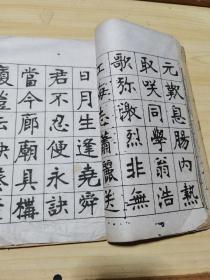 元歎息腸内熱
取咲同學翁浩
歌弥激烈非無
江海志蕭灑送
日月生逢堯舜
君不忍便永訣
當今廊廟具構